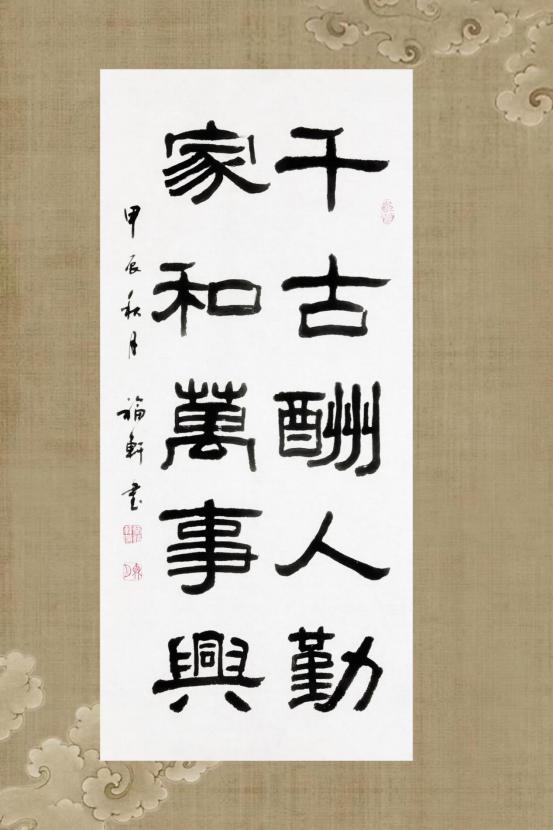 千古酬人勤
家和萬事興
甲辰秋月 福軒書